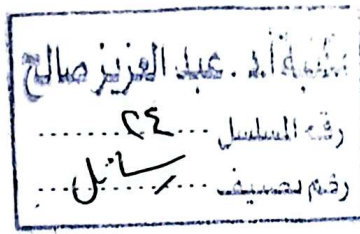 مكتبة أ.د. عبد العزيز صالح
رقم المسلسل ٢٤
رقم تصنيف رسائل